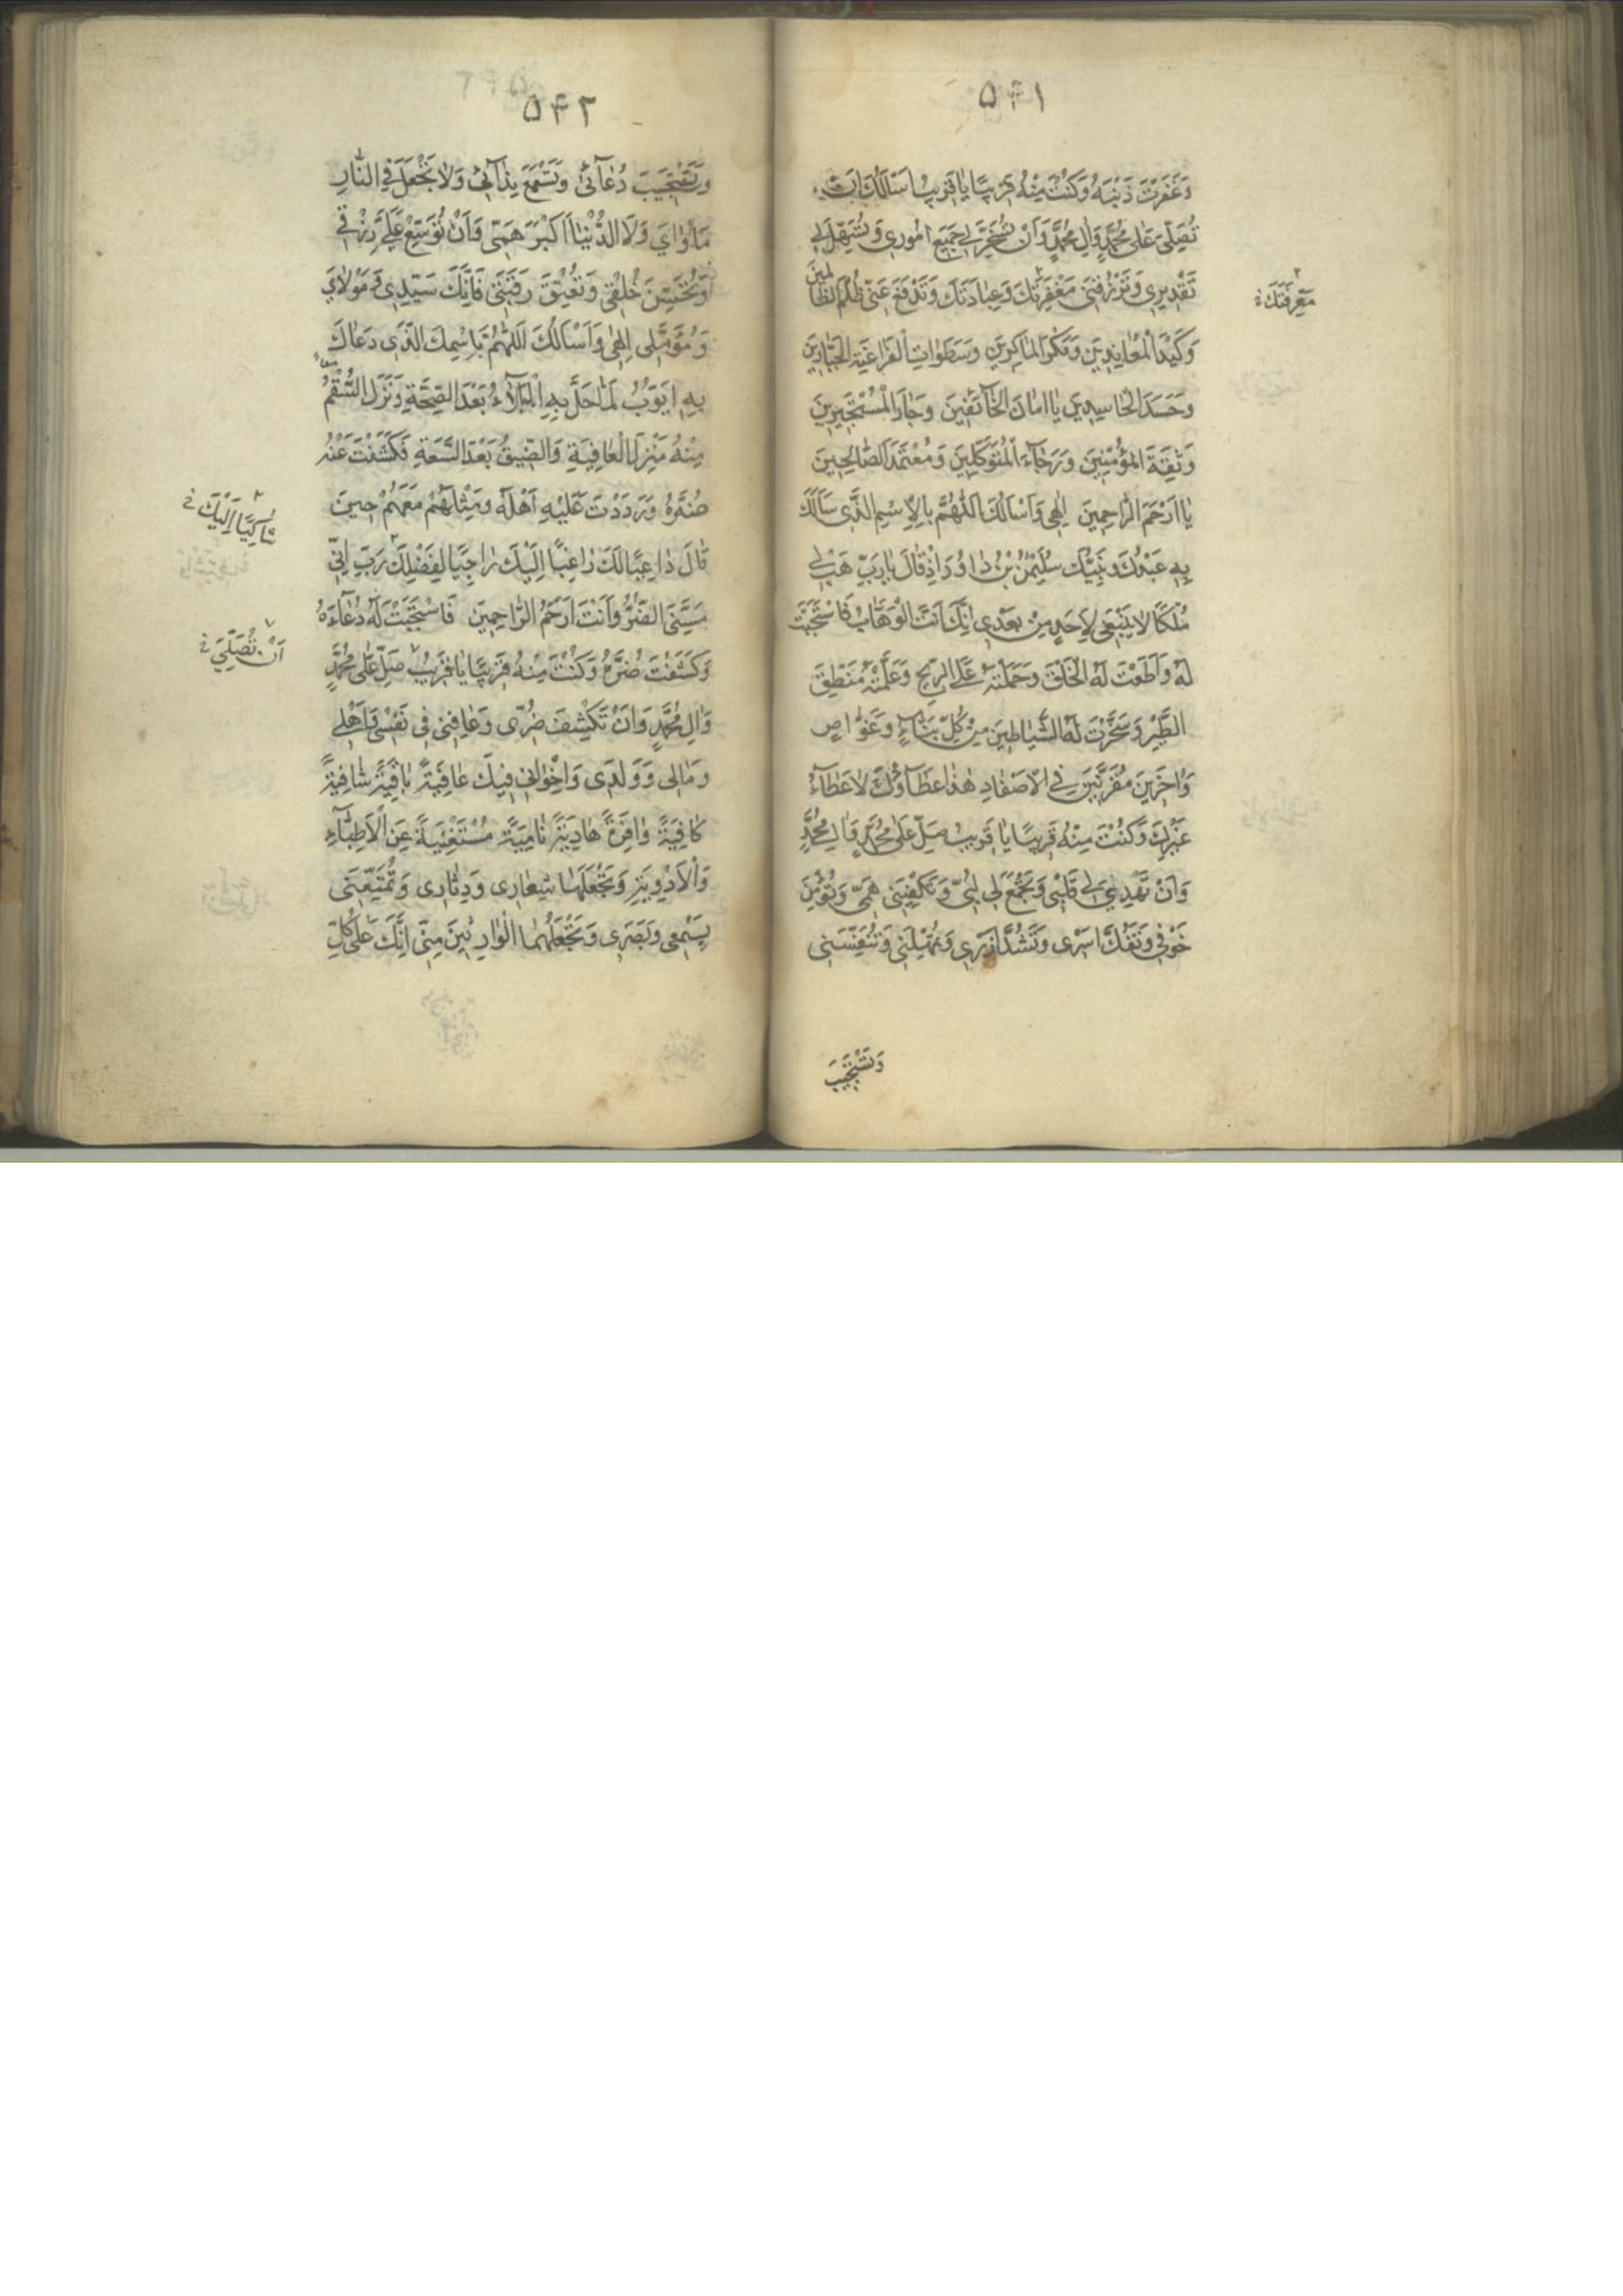 ۵۴۱
وَغَفَرْتَ ذَنْبَهُ وَكُنْتَ مِنْهُ قَرِيبًا يَا قَرِيبُ اَسْأَلُكَ اَنْ
تُصَلِّيَ عَلٰى مُحَمَّدٍ وَاٰلِ مُحَمَّدٍ وَاَنْ تُسَخِّرَ لِي جَمِيعَ اُمُورِي وَتُسَهِّلَ لِي
تَقْدِيرِي وَتَرْزُقَنِي مَغْفِرَتَكَ وَعِبَادَتَكَ وَتَدْفَعَ عَنِّي ظُلْمَ الظَّالِمِينَ
مَعْرِفَتَكَ
وَكَيْدَ الْمُعَانِدِينَ وَمَكْرَ الْمَاكِرِينَ وَسَطَوَاتِ الْفَرَاعِنَةِ الْجَبَّارِينَ
وَحَسَدَ الْحَاسِدِينَ يَا اَمَانَ الْخَآئِفِينَ وَجَارَ الْمُسْتَجِيرِينَ
وَثِقَةَ الْمُؤْمِنِينَ وَرَجَآءَ الْمُتَوَكِّلِينَ وَمُعْتَمَدَ الصَّالِحِينَ
يَا اَرْحَمَ الرَّاحِمِينَ اِلٰهِي وَاَسْأَلُكَ اللّٰهُمَّ بِالْاِسْمِ الَّذِي سَأَلَكَ
بِهِ عَبْدُكَ وَنَبِيُّكَ سُلَيْمٰنُ بْنُ دَاوُدَ اِذْ قَالَ يَا رَبِّ هَبْ لِي
مُلْكًا لَا يَنْبَغِي لِاَحَدٍ مِنْ بَعْدِي اِنَّكَ اَنْتَ الْوَهَّابُ فَاسْتَجَبْتَ
لَهُ وَاَطَعْتَ لَهُ الْخَلْقَ وَحَمَلْتَهُ عَلَى الرِّيحِ وَعَلَّمْتَهُ مَنْطِقَ
الطَّيْرِ وَسَخَّرْتَ لَهُ الشَّيَاطِينَ مِنْ كُلِّ بَنَّآءٍ وَغَوَّاصٍ
وَاٰخَرِينَ مُقَرَّنِينَ فِي الْاَصْفَادِ هٰذَا عَطَآؤُكَ لَا عَطَآءُ
غَيْرِكَ وَكُنْتَ مِنْهُ قَرِيبًا يَا قَرِيبُ صَلِّ عَلٰى مُحَمَّدٍ وَاٰلِ مُحَمَّدٍ
وَاَنْ تَهْدِيَ لِي قَلْبِي وَتَجْمَعَ لِي لُبِّي وَتَكْفِيَنِي هَمِّي وَتُؤْمِنَ
خَوْفِي وَتَفُكَّ اَسْرِي وَتَشُدَّ اَزْرِي وَتُمْهِلَنِي وَتُنَفِّسَنِي
وَتَسْتَجِيبَ
۵۴۲
وَتَسْتَجِيبَ دُعَآئِي وَتَسْمَعَ نِدَآئِي وَلَا تَجْعَلْ فِي النَّارِ
مَأْوَايَ وَلَا الدُّنْيَا اَكْبَرَ هَمِّي وَاَنْ تُوَسِّعَ عَلَيَّ رِزْقِي
وَتُحَسِّنَ خُلْقِي وَتُعْتِقَ رَقَبَتِي فَاِنَّكَ سَيِّدِي وَمَوْلَايَ
وَمُؤَمَّلِي اِلٰهِي وَاَسْأَلُكَ اللّٰهُمَّ بِاسْمِكَ الَّذِي دَعَاكَ
بِهِ اَيُّوبُ لَمَّا حَلَّ بِهِ الْبَلَآءُ بَعْدَ الصِّحَّةِ وَنَزَلَ السُّقْمُ
مِنْهُ مَنْزِلَ الْعَافِيَةِ وَالضِّيقُ بَعْدَ السَّعَةِ فَكَشَفْتَ عَنْهُ
ضُرَّهُ وَرَدَدْتَ عَلَيْهِ اَهْلَهُ وَمِثْلَهُمْ مَعَهُمْ حِينَ
شَاكِيًا اِلَيْكَ
قَالَ دَاعِيًا لَكَ رَاغِبًا اِلَيْكَ رَاجِيًا لِفَضْلِكَ رَبِّ اِنِّي
مَسَّنِيَ الضُّرُّ وَاَنْتَ اَرْحَمُ الرَّاحِمِينَ فَاسْتَجَبْتَ لَهُ دُعَآءَهُ
اَنْ تُصَلِّيَ
وَكَشَفْتَ ضُرَّهُ وَكُنْتَ مِنْهُ قَرِيبًا يَا قَرِيبُ صَلِّ عَلٰى مُحَمَّدٍ
وَاٰلِ مُحَمَّدٍ وَاَنْ تَكْشِفَ ضُرِّي وَعَافِنِي فِي نَفْسِي وَاَهْلِي
وَمَالِي وَوَلَدِي وَاِخْوَانِي فِيكَ عَافِيَةً بَاقِيَةً شَافِيَةً
كَافِيَةً وَافِرَةً هَادِيَةً نَامِيَةً مُسْتَغْنِيَةً عَنِ الْاَطِبَّآءِ
وَالْاَدْوِيَةِ وَتَجْعَلَهَا شِعَارِي وَدِثَارِي وَتُمَتِّعَنِي
بِسَمْعِي وَبَصَرِي وَتَجْعَلَهُمَا الْوَارِثَيْنِ مِنِّي اِنَّكَ عَلٰى كُلِّ